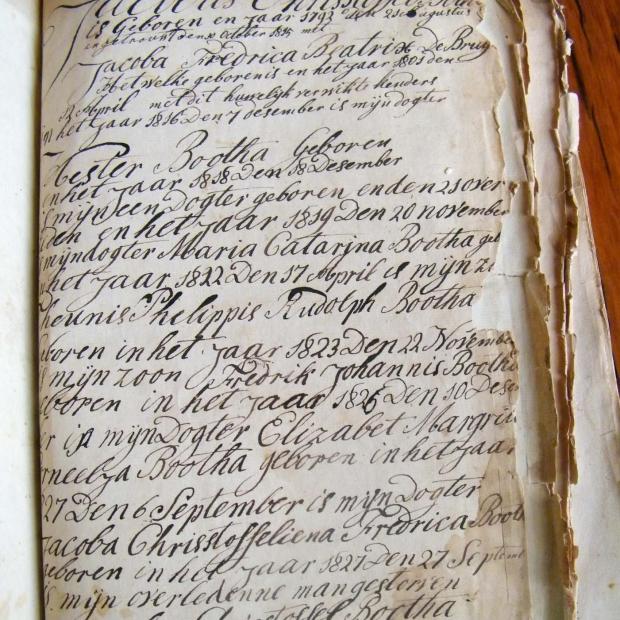 is Geboren en Jaar 1793 den 21 augustus
ingetrouwt den october 1815 met
Jacoba Fredrica Beatrix De Bruy
Het welke geborenis en het jaar 1801 den
12 April met dit huwelijk verwikte kenders
het jaar 1816 Den 7 desember is mijn dogter
Hester Bootha Geboren
en het Jaar 1818 Den 18 Desember
mijn een Dogter geboren en den 21 over
den en het Jaar 1819 Den 20 november
mijn dogter Maria Catarina Bootha ge
het Jaar 1822 Den 17 April is mijn z
heunis Phelippis Rudolph Bootha
eboren in het Jaar 1823 Den 22 November
mijn zoon Fredrik Johannis Bootha
eboren in het Jaar 1826 Den 10 Desem
er is mijn Dogter Elizabet Margrit
rneelza Bootha geboren in het jaar
27 Den 6 September is mijn Dogter
Jacoba Chrisstoffeliena Fredrica Booth
geboren in het Jaar 1827 Den 27 Septem
is mijn overledenne man gesterven
Bootha